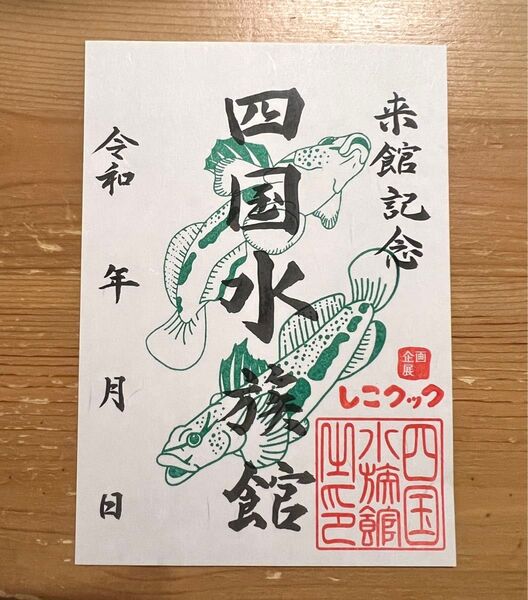 来館記念
四国水族館
令和 年 月 日
企画展
しこクック
四国水族館之印